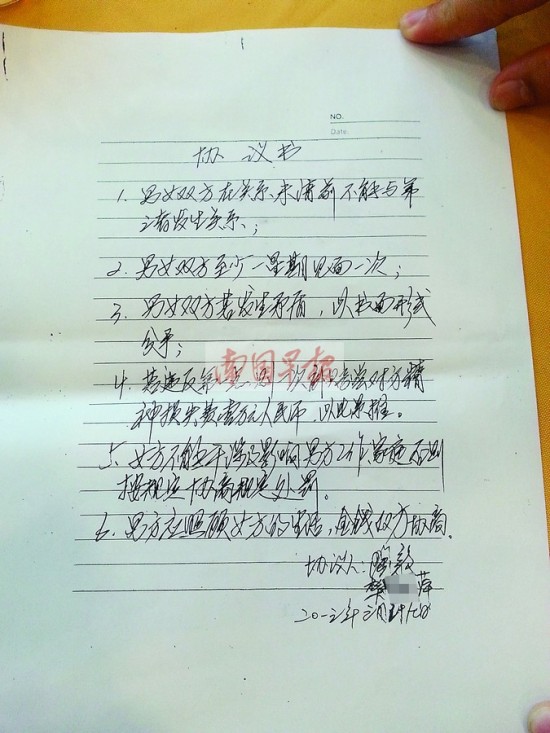 NO.
Date
协议书
1. 男女双方在关系未清前不能与第
三者发生关系;
2. 男女双方至少一星期见面一次;
3. 男女双方若发生矛盾,以书面形式
公平;
南国早报
4. 若违反第 一次 对方精
神损失费壹万元人民币,以此类推。
5、女方不能干涉及影响男方工作、家庭否则
按规定协商规定处罚。
6. 男方应照顾女方的生活,金钱双方协商。
协议人:
萍
二0一三年